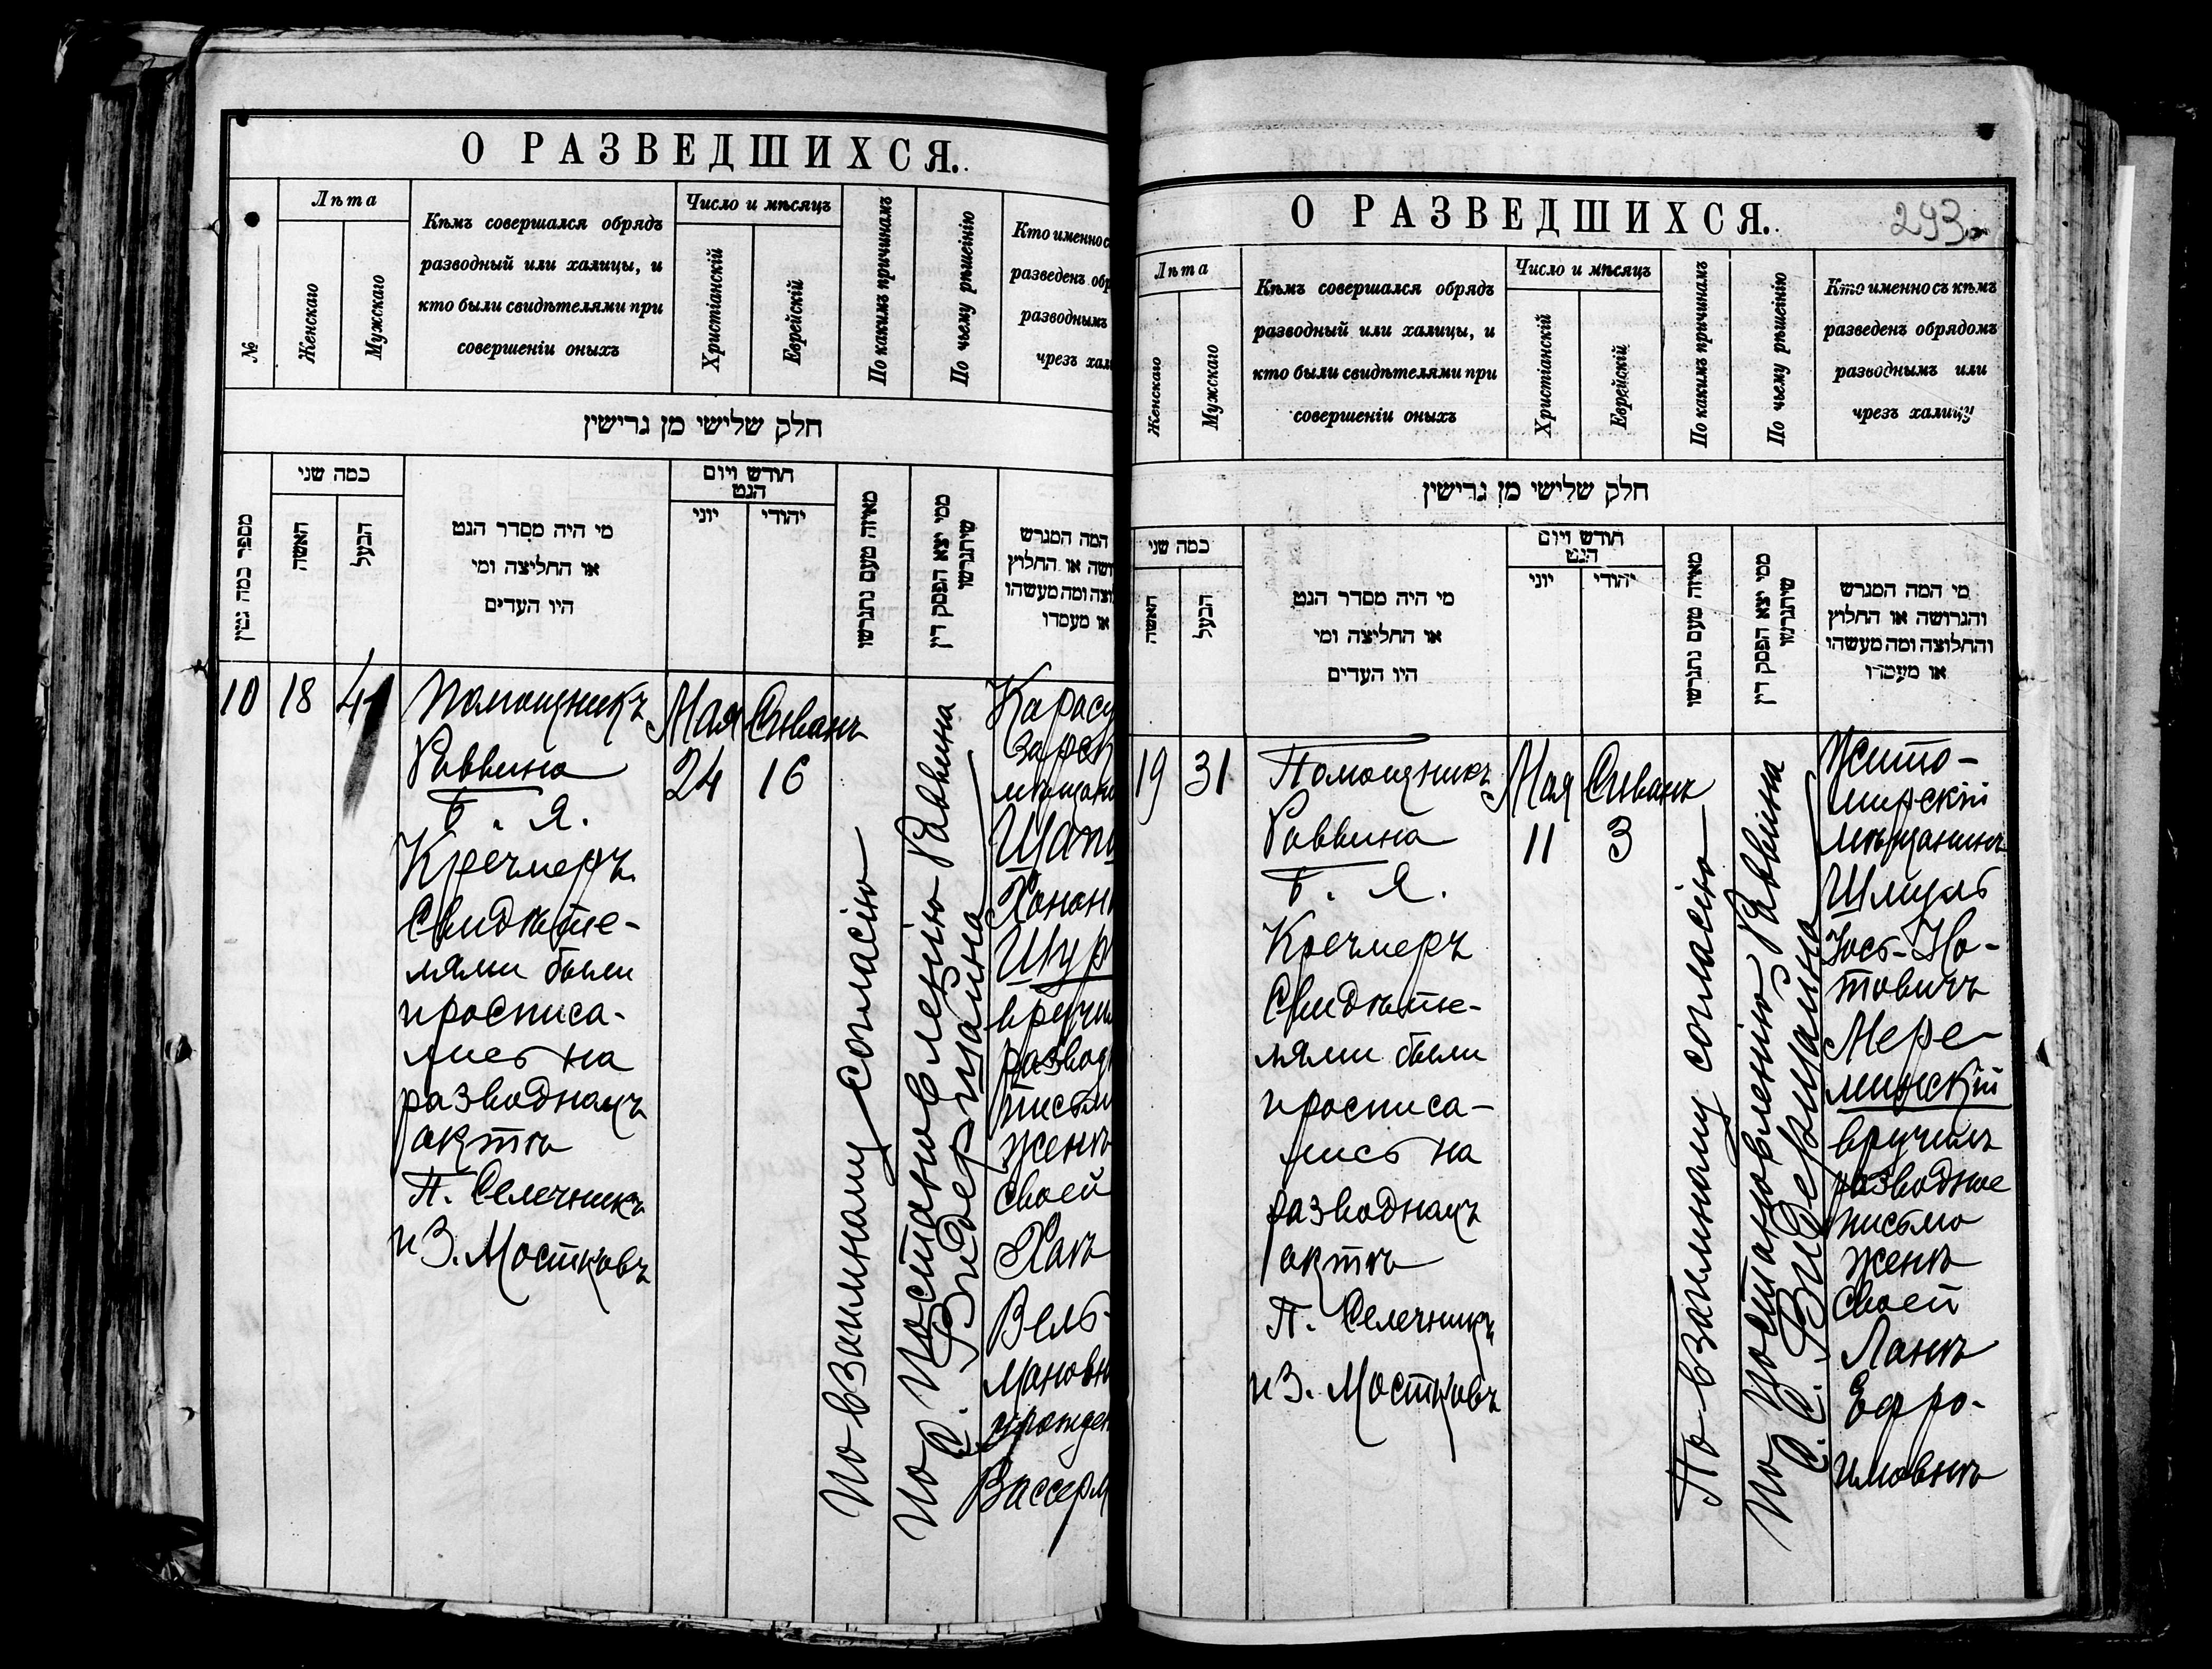 О РАЗВЕДШИХСЯ.
№
Лѣта
Женскаго
Мужскаго
Кѣмъ совершался обрядъ
разводный или халицы, и
кто были свидѣтелями при
совершеніи оныхъ
Число и мѣсяцъ
Христіанскій
Еврейскій
По какимъ причинамъ
По чьему рѣшенію
Кто именно с
разведенъ обр
разводнымъ
чрезъ хал
חלק שלישי מן גרישין
מספר כמה גטין
כמה שני
האשה
הבעל
מי היה מסדר הגט
או החליצה ומי
היו העדים
חודש ויום
הגט
יוני
יהודי
מאיזה טעם נתגרשו
ממי יצא הפסק דין
שיתגרשו
המה המגרש
ושה או החלוץ
וצה ומה מעשהו
או מעמדו
10
18
41
Помощникъ
Раввина
Б. Я.
Кречмеръ.
Свидѣте-
лями были
и росписа-
лись на
разводномъ
актѣ
П. Селечникъ
и З. Мостковъ
Мая
24
Сиванъ
16
По взаимному согласію
По постановленію Раввина
С. Видерщайна
Карасу
зарск
мѣщани
Шап
Ханон
Шур
вручи
развод
письм
женѣ
своей
Хаѣ
Вель-
мановн
урожден
Вассерм
О РАЗВЕДШИХСЯ.
293
Лѣта
Женскаго
Мужскаго
Кѣмъ совершался обрядъ
разводный или халицы, и
кто были свидѣтелями при
совершеніи оныхъ
Число и мѣсяцъ
Христіанскій
Еврейскій
По какимъ причинамъ
По чьему рѣшенію
Кто именно съ кѣмъ
разведенъ обрядомъ
разводнымъ или
чрезъ халицу
חלק שלישי מן גרישין
כמה שני
האשה
הבעל
מי היה מסדר הגט
או החליצה ומי
היו העדים
חודש ויום
הגט
יוני
יהודי
מאיזה טעם נתגרשו
ממי יצא הפסק דין
שיתגרשו
מי המה המגרש
והגרושה או החלוץ
והחלוצה ומה מעשהו
או מעמדו
19
31
Помощникъ
Раввина
Б. Я.
Кречмеръ
Свидѣте-
лями были
и росписа-
лись на
разводномъ
актѣ
П. Селечникъ
и З. Мостковъ
Мая
11
Сиванъ
3
По взаимному согласію
По постановленію Раввина
С. Видерщайна
Жито-
мирскій
мѣщанинъ
Шмуль
Іось-Но-
товичъ
Мере-
минскій
вручилъ
разводное
письмо
женѣ
своей
Ланѣ
Ефро-
имовнѣ